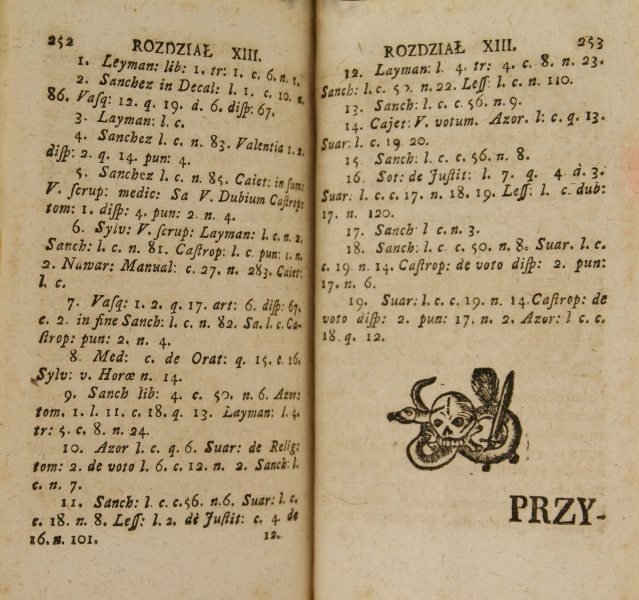 252 ROZDZIAŁ XIII.
1. Leyman: lib: 1. tr: 1. c. 6. n. 1.
2. Sanchez in Decal: l. 1. c. 10. n.
86. Vaſq: 12. q. 19. d. 6. diſp: 67.
3. Layman: l. c.
4. Sanchez l. c. n. 83. Valentia 1. 2.
diſp: 2. q. 14. pun: 4.
5. Sanchez l. c. n. 85. Caiet: in ſum:
V. ſcrup: medic: Sa V. Dubium Caſtrop:
tom: 1. diſp: 4. pun: 2. n. 4.
6. Sylv: V. ſcrup: Layman: l. c. n. 2.
Sanch: l. c. n. 81. Caſtrop: l. c. pun: 1. n.
2. Nawar: Manual: c. 27. n. 283. Caiet:
l. c.
7. Vaſq: 1. 2. q. 17. art: 6. diſp: 67.
c. 2. in fine Sanch: l. c. n. 82. Sa. l. c. Ca-
ſtrop: pun: 2. n. 4.
8. Med: c. de Orat: q. 15. c. 16.
Sylv: v. Horæ n. 14.
9. Sanch lib: 4. c. 50. n. 6. Azor:
tom. 1. l. 11. c. 18. q. 13. Layman: l. 4.
tr: 5. c. 8. n. 24.
10. Azor l. c. q. 6. Suar: de Relig:
tom: 2. de voto l. 6. c. 12. n. 2. Sanch: l.
c. n. 7.
11. Sanch: l. c. c. 56. n. 6. Suar: l. c.
c. 18. n. 8. Leſſ: l. 2. de Juſtit: c. 4. de
16. n. 101.
12.
ROZDZIAŁ XIII. 253
12. Layman: l. 4. tr: 4. c. 8. n. 23.
Sanch: l. c. 50. n. 22. Leſſ: l. c. n. 110.
13. Sanch: l. c. c. 56. n. 9.
14. Cajet: V. votum. Azor. l: c. q. 13.
Suar: l. c. 19 20.
15. Sanch: l. c. c. 56. n. 8.
16. Sot: de Juſtit: l. 7. q. 4 d. 3.
Suar: l. c. c. 17. n. 18. 19. Leſſ: l. c. dub:
17. n. 120.
17. Sanch l c. n. 3.
18. Sanch: l. c. c. 50. n. 8. Suar. l. c.
c. 19 n. 14. Caſtrop: de voto diſp: 2. pun:
17. n. 6.
19. Suar: l. c. c. 19. n. 14. Caſtrop: de
voto diſp: 2. pun: 17. n. 2. Azor: l c. c.
18. q. 12.
PRZY-